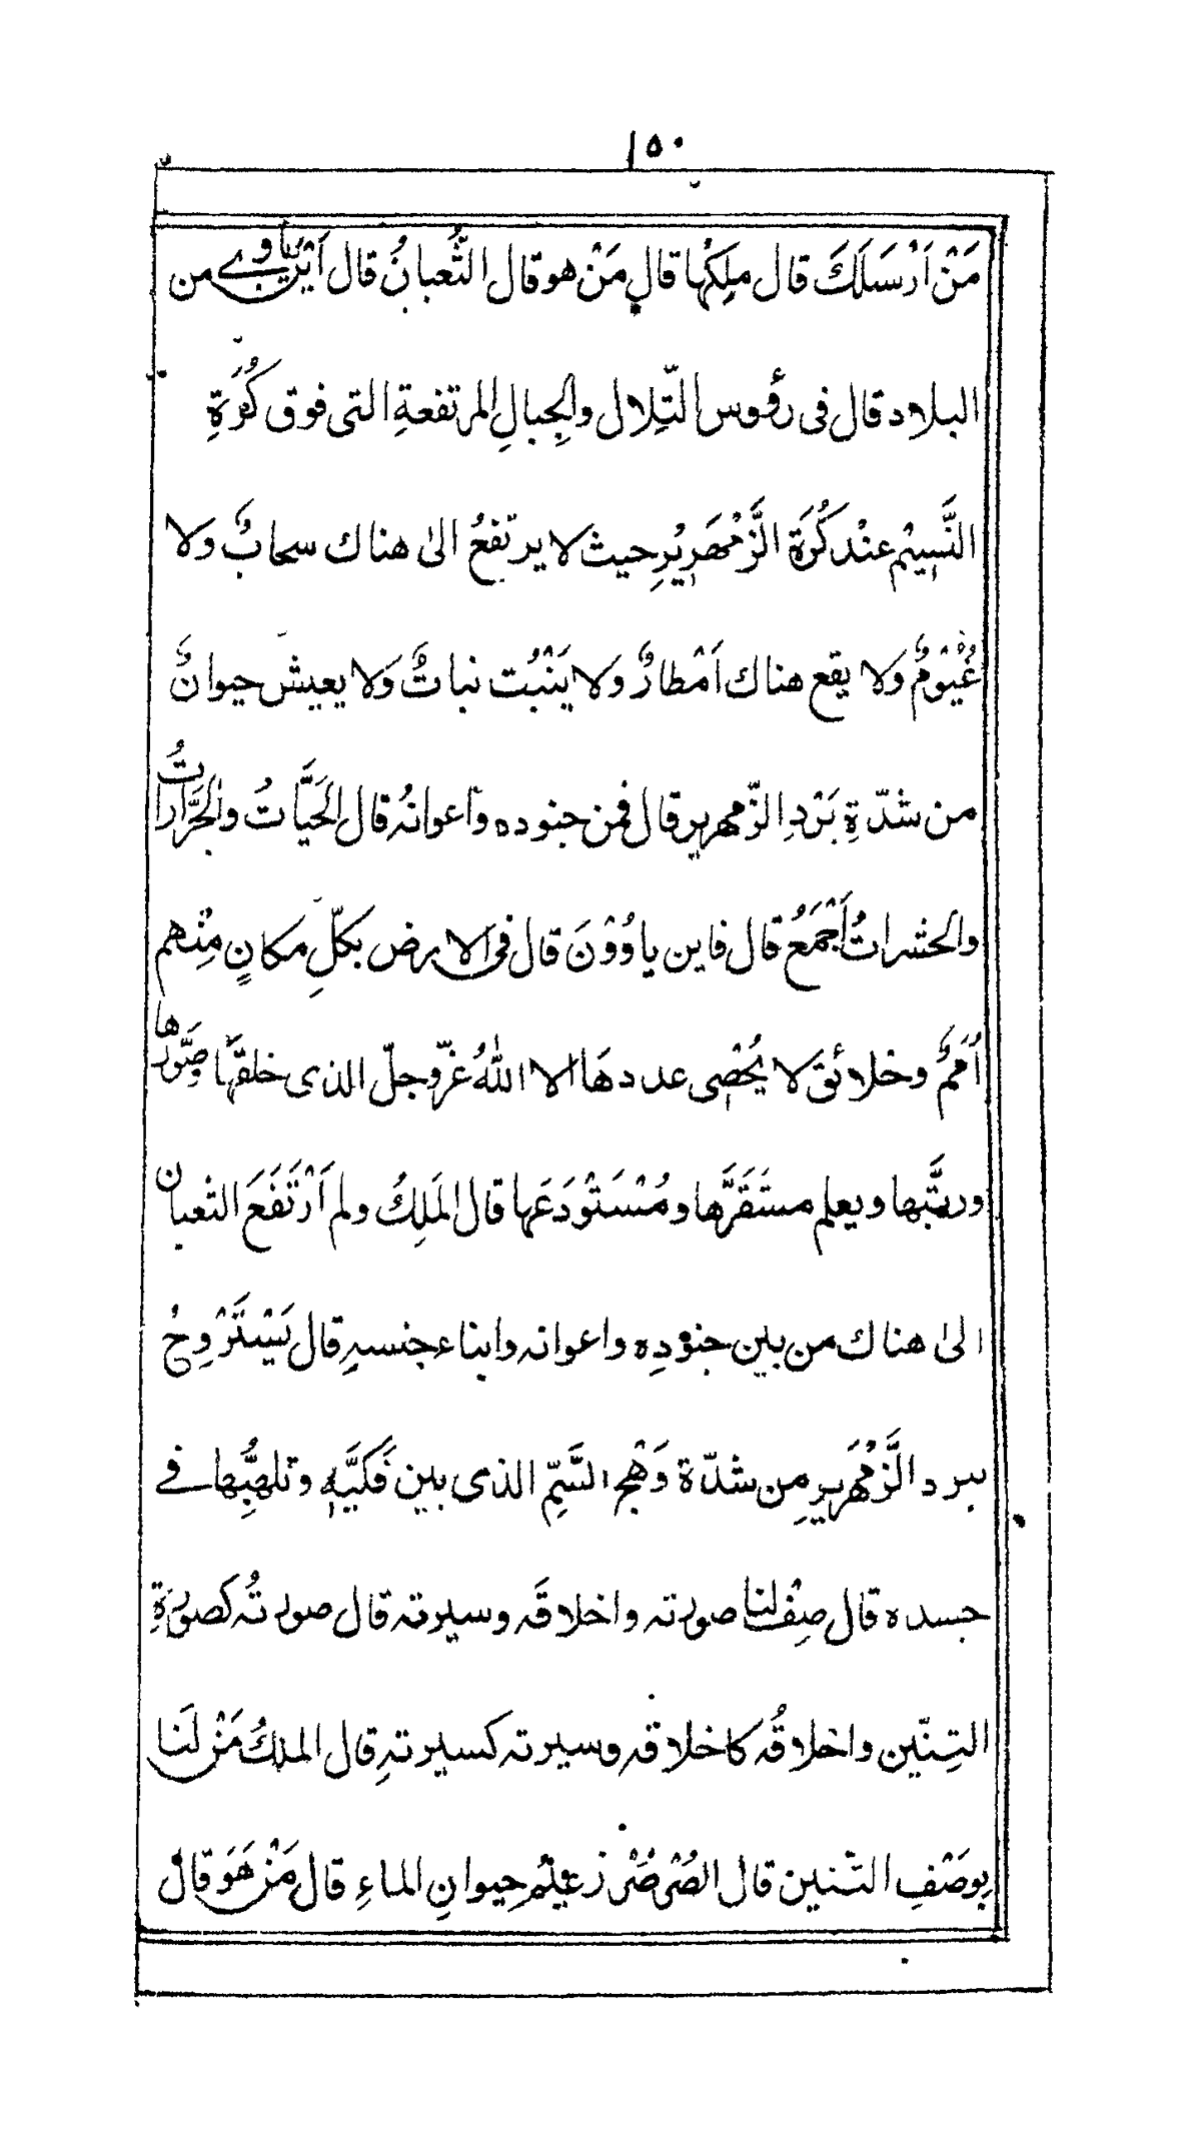 ١٥٠
مَنْ اَرْسَلَكَ قال ملِكُها قال مَنْ هو قال الثُّعبانُ قال اَيْنَ ياوي من
البلاد قال فى رؤوس التّلِال والجِبالِ المرتفعةِ التى فوق كُرَةِ
النَّسِيْمِ عنْد كُرَةِ الزَّمْهَرِيْرِ حيث لا يرتفعُ الىٰ هناك سحابٌ ولا
غُيُوْمٌ ولا يقع هناك اَمْطارٌ ولا يَنْبُت نباتٌ ولا يعيش حيوانٌ
من شدّةِ بَرْدِ الزّمهرير قال فمن جنوده واعوانُه قال الحَيَّاتُ والجَرَّاراتُ
والحشراتُ اَجْمَعُ قال فاين ياوُوْنَ قال فى الارض بكلّ مكانٍ مِنْهم
اُمَمٌ وخلائق لا يُحْصٰى عددهَا الا اللهُ عزّوجلّ الذى خلقَها وصَوَّرها
وربَّتها ويعلم مستَقَرَّها ومُسْتَوْدَعَها قال المَلِكُ ولم اَرْتَفَعَ الثعبان
الىٰ هناك من بين جنودِه واعوانه وابناء جنسهِ قال يَسْتَرْوِحُ
ببرد الزَّمْهَريرِ مِن شدّة وَهْجِ السَّمِّ الذى بين فَكَّيَّهِ وتلهبُّها فے
جسده قال صِفْ لنا صورته واخلاقَه وسيرته قال صورتُه كصورَةِ
التِنّين واخلاقُه كاخلاقه وسيرته كسيرتهِ قال الملكُ مَنْ لَنا
بِوصَفِ التّنين قال الصُرْصُرْ زعيْمُ حِيوانِ الماءِ قال مَنْ هَوَ قال